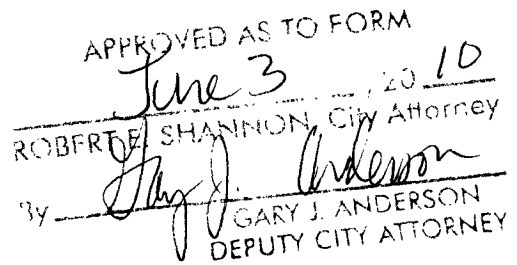 APPROVED AS TO FORM
June 3, 20 10
ROBERT E. SHANNON, City Attorney
By Gary J. Anderson
GARY J. ANDERSON
DEPUTY CITY ATTORNEY